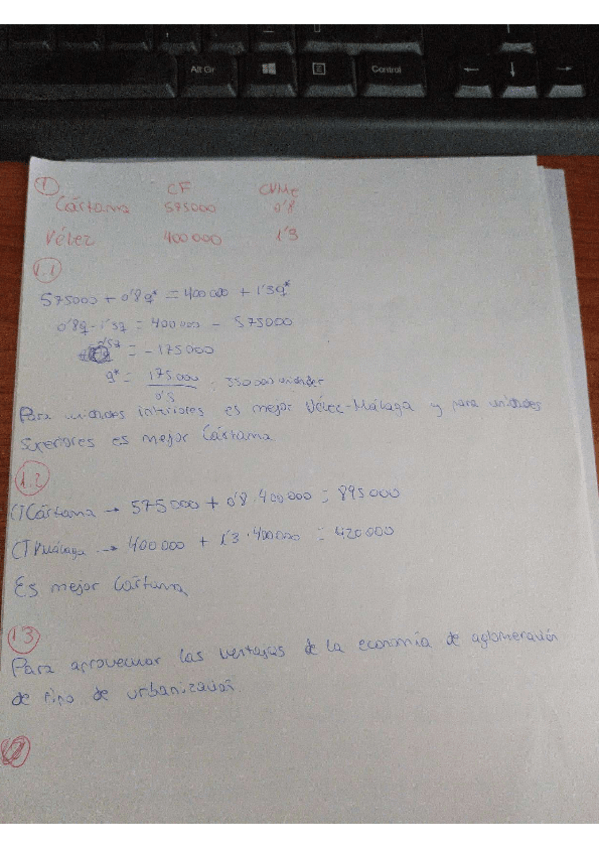 Alt Gr Control
1 CF CVMe
Cártama 575000 0'8
Vélez 400000 1'3
1.1
575000 + 0'8q* = 400000 + 1'3q*
0'8q - 1'3q = 400000 - 575000
= -175000
q* = 175000 / 0'5 = 350000 unidades
Para unidades inferiores es mejor Vélez-Málaga y para unidades
superiores es mejor Cártama
1.2
CTCártama → 575000 + 0'8·400000 = 895000
→ 400000 + 1'3·400000 = 420000
Es mejor Cártama
1.3
Para aprovechar las ventajas de la economía de aglomeración
de tipo de urbanización